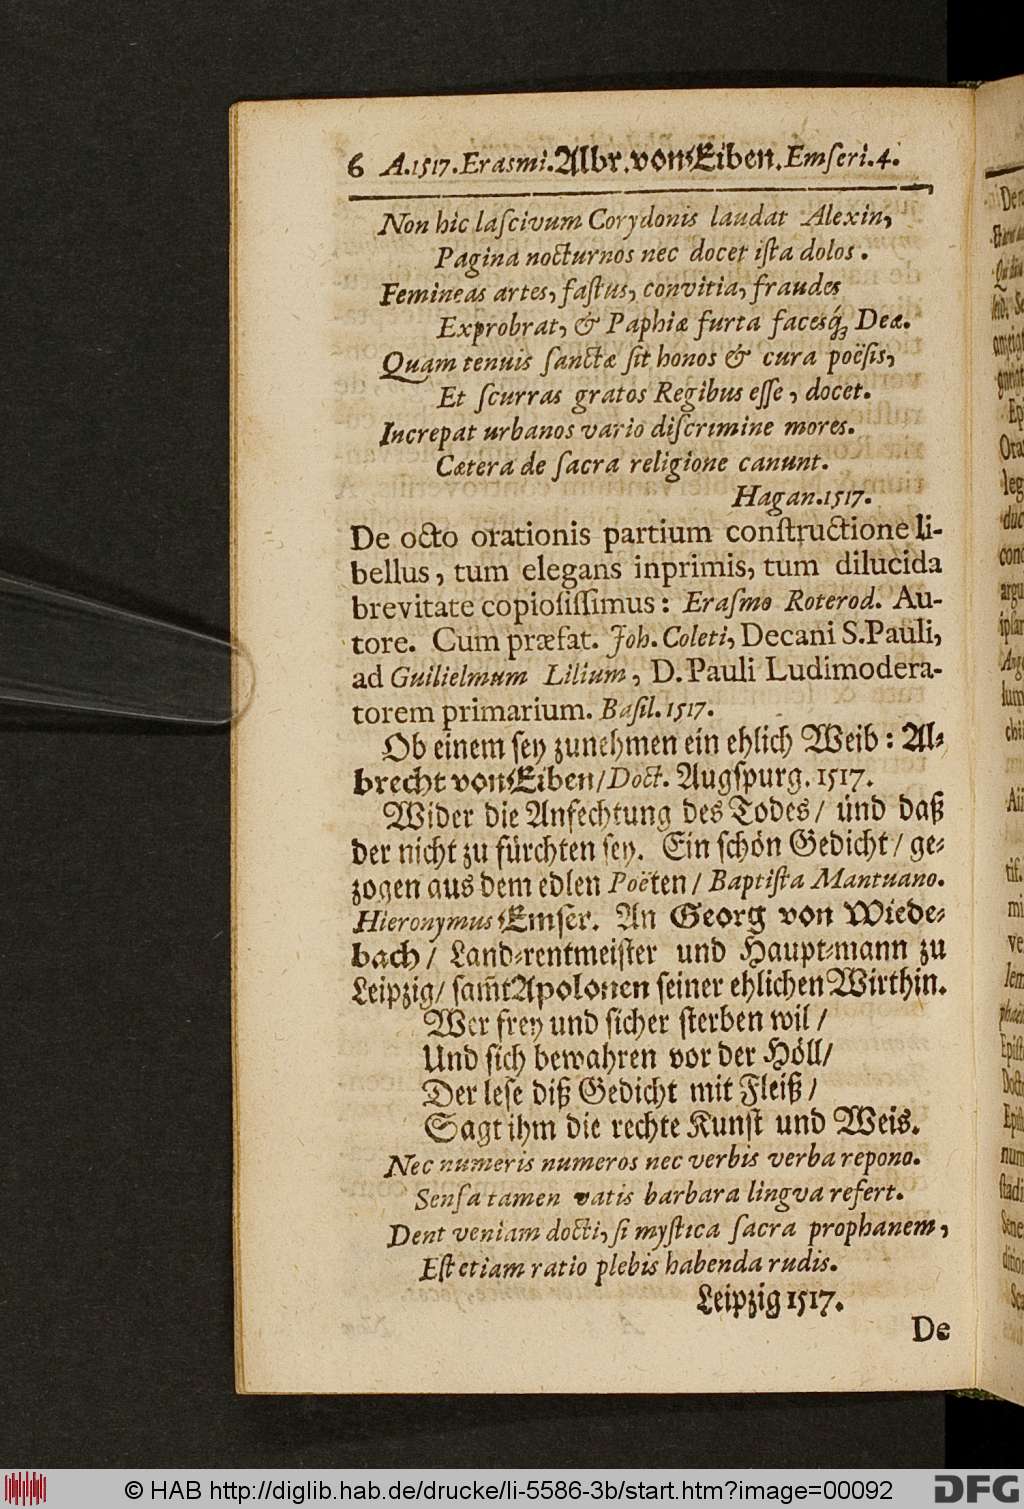 6 A.1517. Erasmi. Albr. von Eiben. Emseri. 4.
Non hic laſcivum Corydonis laudat Alexin,
Pagina nocturnos nec docet iſta dolos.
Femineas artes, faſtus, convitia, fraudes
Exprobrat, & Paphiæ furta facesq́ꝫ Deæ.
Quam tenuis ſanctæ ſit honos & cura poëſis,
Et ſcurras gratos Regibus eſſe, docet.
Increpat urbanos vario diſcrimine mores.
Cætera de ſacra religione canunt.
Hagan. 1517.
De octo orationis partium conſtructione li-
bellus, tum elegans inprimis, tum dilucida
brevitate copioſiſſimus: Eraſmo Roterod. Au-
tore. Cum præfat. Joh. Coleti, Decani S. Pauli,
ad Guilielmum Lilium, D. Pauli Ludimodera-
torem primarium. Baſil. 1517.
Ob einem ſey zunehmen ein ehlich Weib: Al-
brecht von Eiben/ Doct. Augſpurg. 1517.
Wider die Anfechtung des Todes/ und daß
der nicht zu fürchten ſey. Ein ſchön Gedicht/ ge-
zogen aus dem edlen Poëten/ Baptiſta Mantuano.
Hieronymus Emſer. An Georg von Wiede-
bach/ Land-rentmeiſter und Haupt-mann zu
Leipzig/ ſam̃t Apolonen ſeiner ehlichen Wirthin.
Wer frey und ſicher ſterben wil/
Und ſich bewahren vor der Höll/
Der leſe diß Gedicht mit Fleiß/
Sagt ihm die rechte Kunſt und Weis.
Nec numeris numeros nec verbis verba repono.
Senſa tamen vatis barbara lingva refert.
Dent veniam docti, ſi myſtica ſacra prophanem,
Eſt etiam ratio plebis habenda rudis.
Leipzig 1517.
De
© HAB http://diglib.hab.de/drucke/li-5586-3b/start.htm?image=00092
DFG